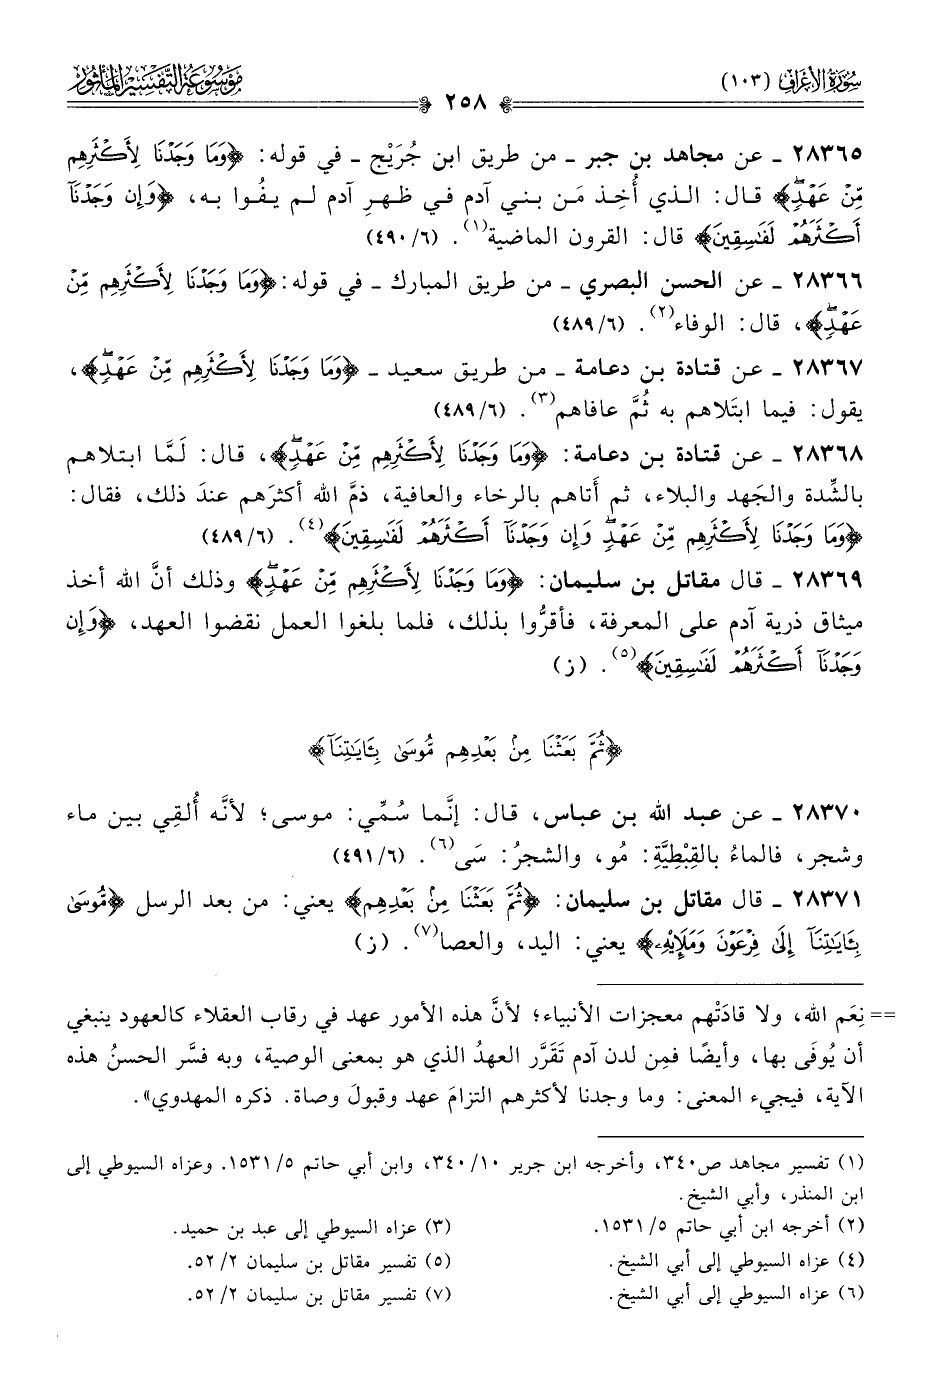 سورة الأعراف (١٠٣)
موسوعة التفسير المأثور
٢٥٨
٢٨٣٦٥ ـ عن مجاهد بن جبر ـ من طريق ابن جُرَيْج ـ في قوله: ﴿وَمَا وَجَدْنَا لِأَكْثَرِهِم
مِّنْ عَهْدٍ﴾ قال: الذي أُخِذ مَن بني آدم في ظهرِ آدم لم يفُوا به، ﴿وَإِن وَجَدْنَآ
أَكْثَرَهُمْ لَفَٰسِقِينَ﴾ قال: القرون الماضية(١). (٦/ ٤٩٠)
٢٨٣٦٦ ـ عن الحسن البصري ـ من طريق المبارك ـ في قوله: ﴿وَمَا وَجَدْنَا لِأَكْثَرِهِم مِّنْ
عَهْدٍ﴾، قال: الوفاء(٢). (٦/ ٤٨٩)
٢٨٣٦٧ ـ عن قتادة بن دعامة ـ من طريق سعيد ـ ﴿وَمَا وَجَدْنَا لِأَكْثَرِهِم مِّنْ عَهْدٍ﴾،
يقول: فيما ابتَلاهم به ثُمَّ عافاهم(٣). (٦/ ٤٨٩)
٢٨٣٦٨ ـ عن قتادة بن دعامة: ﴿وَمَا وَجَدْنَا لِأَكْثَرِهِم مِّنْ عَهْدٍ﴾، قال: لَمَّا ابتلاهم
بالشِّدة والجَهد والبلاء، ثم أَتاهم بالرخاء والعافية، ذمَّ الله أكثرَهم عندَ ذلك، فقال:
﴿وَمَا وَجَدْنَا لِأَكْثَرِهِم مِّنْ عَهْدٍ وَإِن وَجَدْنَآ أَكْثَرَهُمْ لَفَٰسِقِينَ﴾(٤). (٦/ ٤٨٩)
٢٨٣٦٩ ـ قال مقاتل بن سليمان: ﴿وَمَا وَجَدْنَا لِأَكْثَرِهِم مِّنْ عَهْدٍ﴾ وذلك أنَّ الله أخذ
ميثاق ذرية آدم على المعرفة، فأقرُّوا بذلك، فلما بلغوا العمل نقضوا العهد، ﴿وَإِن
وَجَدْنَآ أَكْثَرَهُمْ لَفَٰسِقِينَ﴾(٥). (ز)
﴿ثُمَّ بَعَثْنَا مِنۢ بَعْدِهِم مُّوسَىٰ بِـَٔايَٰتِنَآ﴾
٢٨٣٧٠ ـ عن عبد الله بن عباس، قال: إنَّما سُمِّي: موسى؛ لأنَّه أُلقِي بين ماء
وشجر، فالماءُ بالقِبطيَّةِ: مُو، والشجرُ: سَى(٦). (٦/ ٤٩١)
٢٨٣٧١ ـ قال مقاتل بن سليمان: ﴿ثُمَّ بَعَثْنَا مِنۢ بَعْدِهِم﴾ يعني: من بعد الرسل ﴿مُّوسَىٰ
بِـَٔايَٰتِنَآ إِلَىٰ فِرْعَوْنَ وَمَلَإِيْهِۦ﴾ يعني: اليد، والعصا(٧). (ز)
== نِعَم الله، ولا قادَتْهم معجزات الأنبياء؛ لأنَّ هذه الأمور عهد في رقاب العقلاء كالعهود ينبغي
أن يُوفَى بها، وأيضًا فمِن لدن آدم تَقَرَّر العهدُ الذي هو بمعنى الوصية، وبه فسَّر الحسنُ هذه
الآية، فيجيء المعنى: وما وجدنا لأكثرهم التزامَ عهد وقبولَ وصاة. ذكره المهدوي».
(١) تفسير مجاهد ص٣٤٠، وأخرجه ابن جرير ١٠/ ٣٤٠، وابن أبي حاتم ٥/ ١٥٣١. وعزاه السيوطي إلى
ابن المنذر، وأبي الشيخ.
(٢) أخرجه ابن أبي حاتم ٥/ ١٥٣١.
(٣) عزاه السيوطي إلى عبد بن حميد.
(٤) عزاه السيوطي إلى أبي الشيخ.
(٥) تفسير مقاتل بن سليمان ٢/ ٥٢.
(٦) عزاه السيوطي إلى أبي الشيخ.
(٧) تفسير مقاتل بن سليمان ٢/ ٥٢.